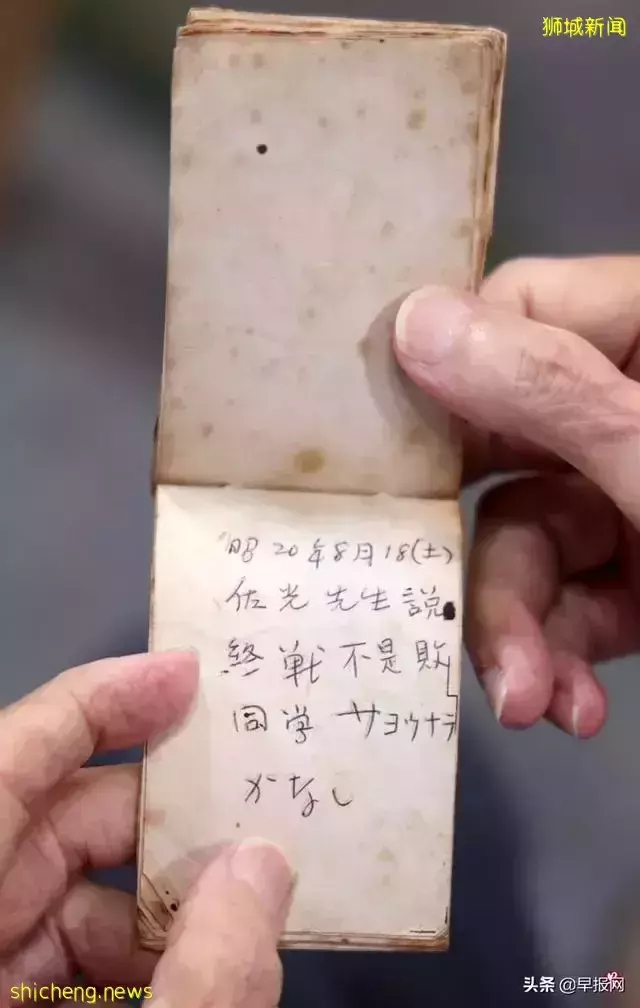 狮城新闻
昭20年8月18(土)
佐光先生説
終戦不是敗
同学サヨウナラ
かなし
shicheng.news
头条@早报网